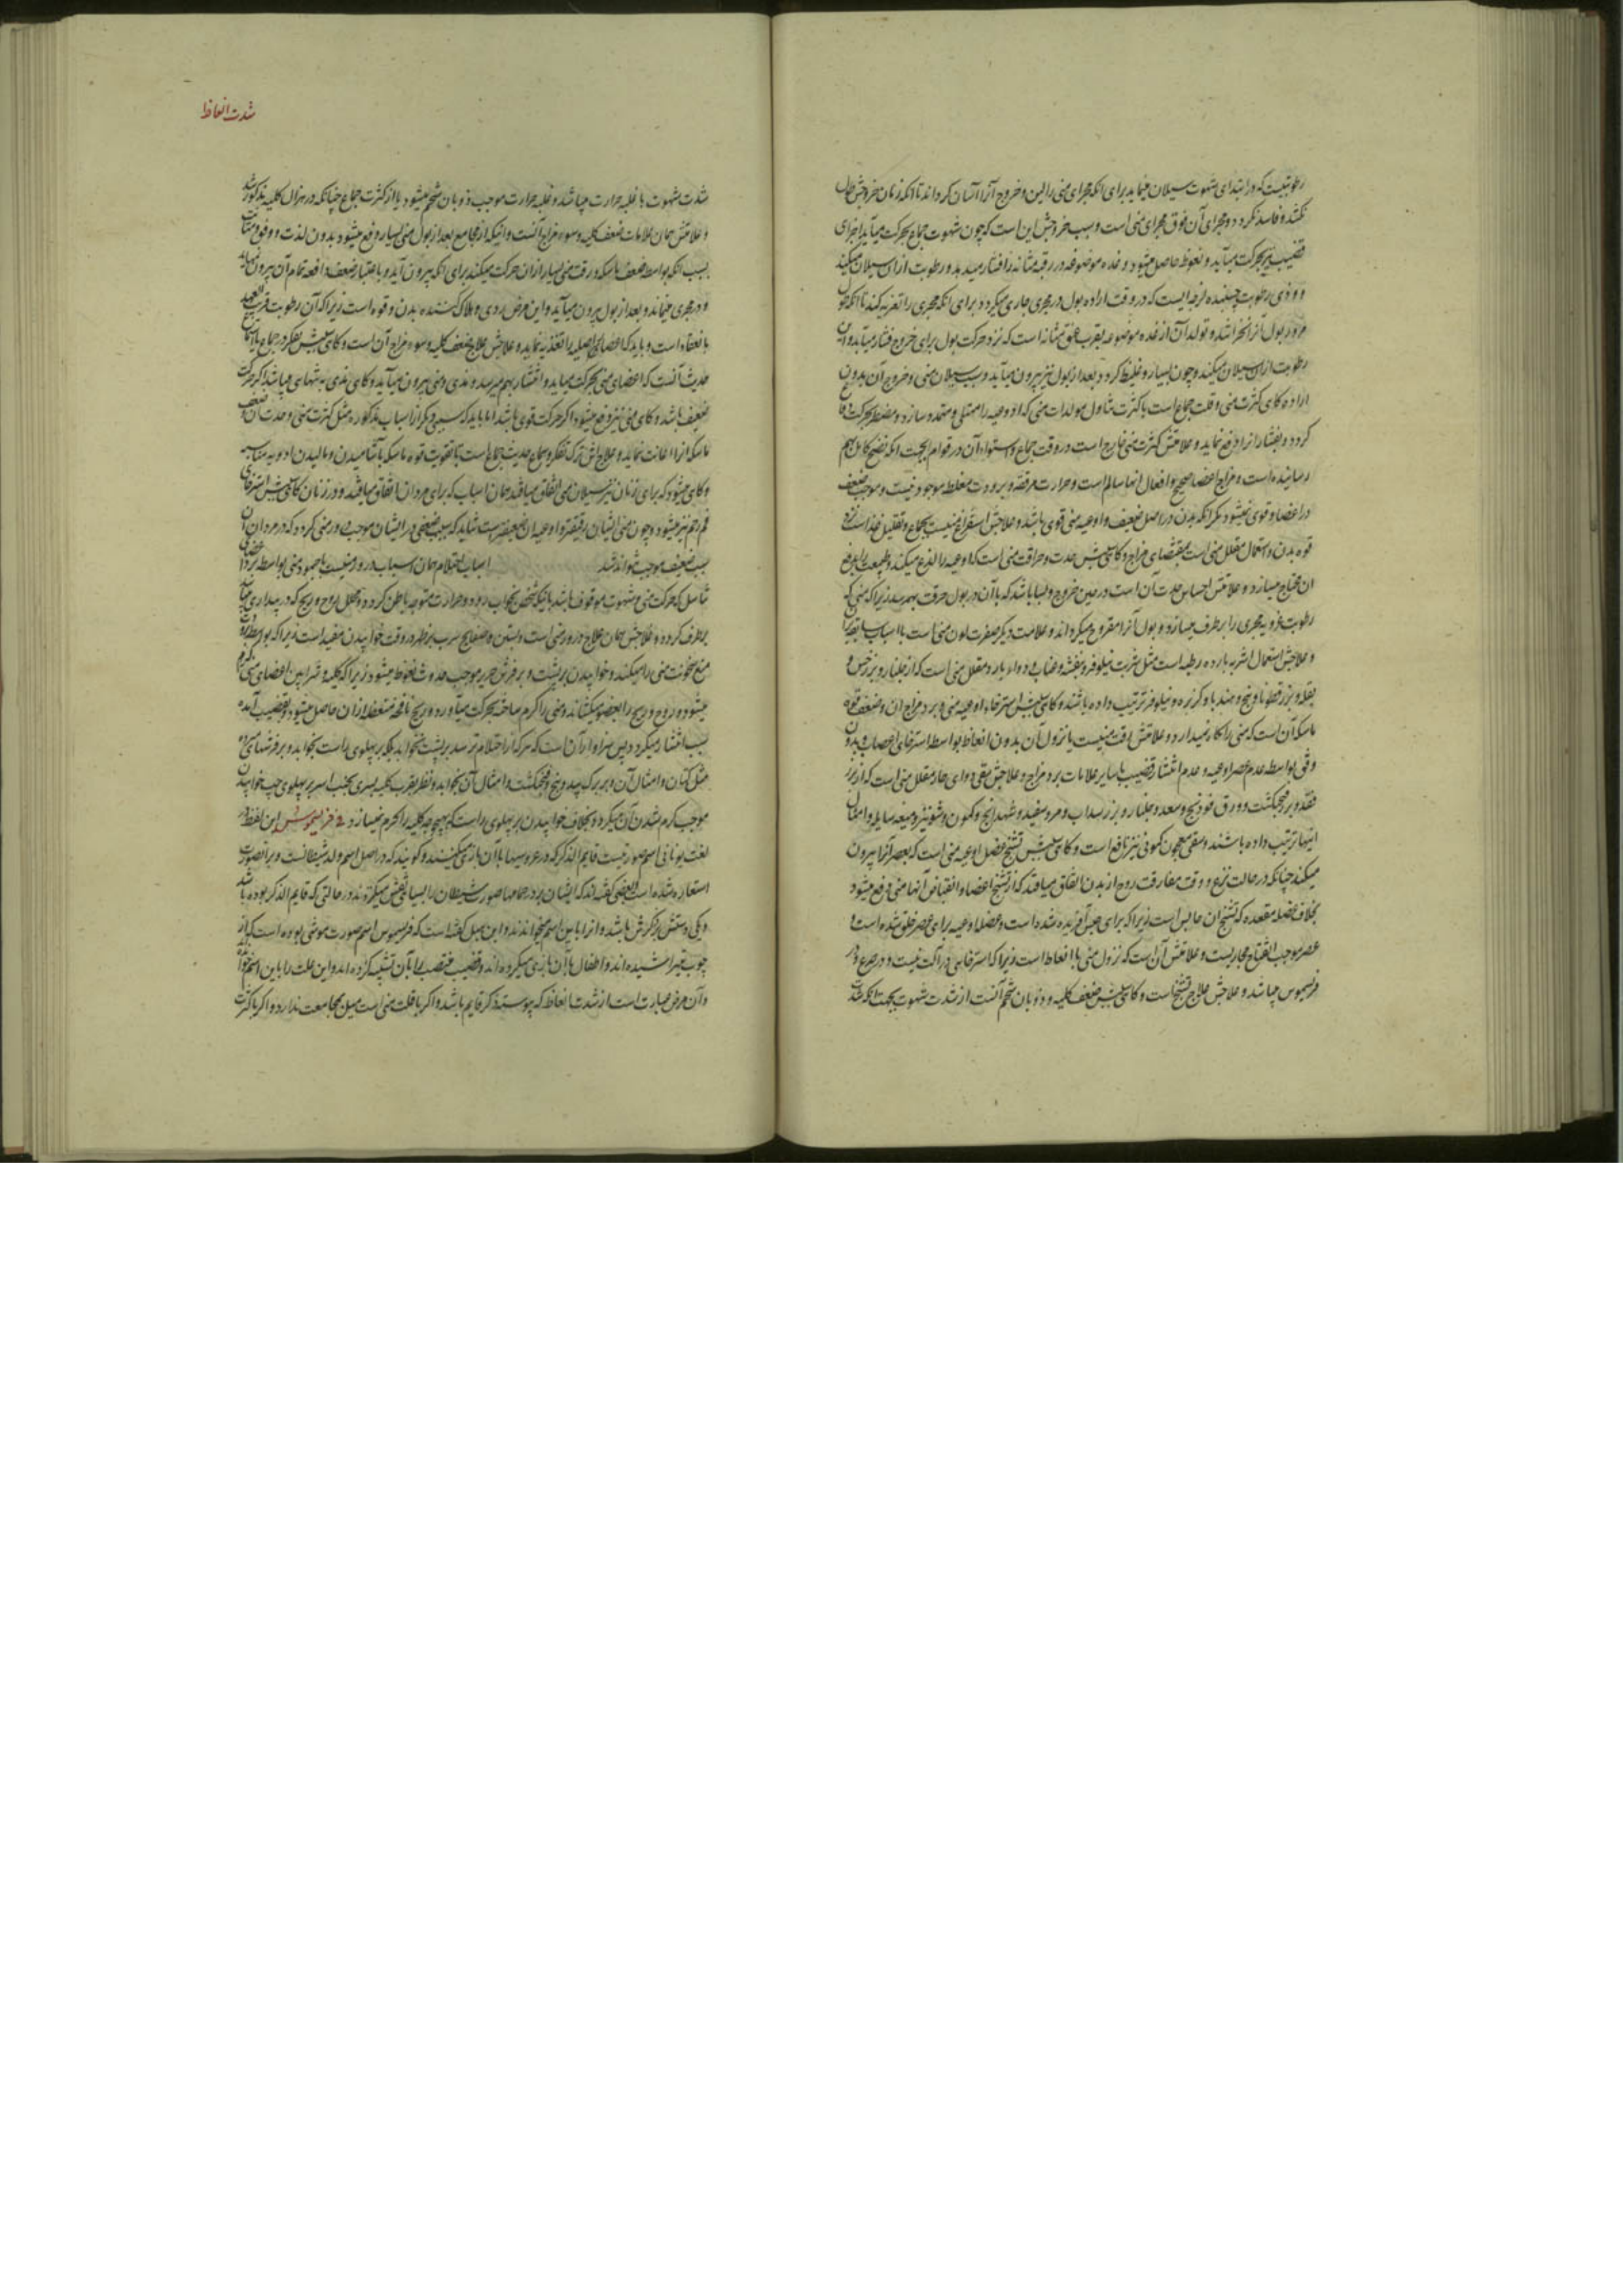 رطوبتیست که در ابتدای شهوت سیلان مینماید برای انکه مجرای منی را لین و خروج آنرا آسان کرداند تا انکه زمان خروجش طول
نکشد و فاسد نکردد و مجرای آن فوق مجرای منی است و سبب خروجش این است که چون شهوت جماع بحرکت میآید اجزای
قضیب نیز بحرکت میآید و نعوظ حاصل میشود و غده موضوعه در رقبه مثانه را فشار میدهد و رطوبت ازان سیلان میکند
و وذی رطوبت چسبنده لزجه ایست که در وقت اراده بول در مجری جاری میکردد برای انکه مجری را تغریه کند تا انکه
مرور بول آنرا نخراشد و تولد آن از غده موضوعه بقرب عنق مثانه است که نزد حرکت بول برای خروج فشار میآید و
رطوبت ازان سیلان میکند و چون بسیار و غلیظ کردد بعد از بول نیز بیرون میآید و سبب سیلان منی و خروج آن بدون
اراده کاهی کثرت منی و قلت جماع است یا کثرت تناول مولدات منی که اوعیه را ممتلی و متمدد سازد و مضطر بحرکت
کردد و بفشار انرا دفع نماید و علامتش کثرت منی خارج است در وقت جماع و استواء آن در قوام بجهت انکه نضج کامل بهم
رسانیده است و مزاج اعضا صحیح و افعال انها سالم است و حرارت مرققه و برودت مغلظه موجود نیست و موجب ضعف
در اعضا و قوی نمیشود مکر انکه بدن در اصل ضعیف و اوعیه منی قوی باشد و علاجش استفراغ منیست بجماع و تقلیل غذاست نزد
قوه بدن و استعمال مقلل منی است بمقتضای مزاج و کاهی سببش حدت و حراقت منی است که اوعیه را لذع میکند و طبیعت را بدفع
ان محتاج میسازد و علامتش احساس حدت آن است در حین خروج و بسا باشد که با آن در بول حرقت بهم رسد زیرا که منی
رطوبت غرویه مجری را برطرف میسازد و بول آنرا مقروح میکرداند و علامت دیکر صفرت لون منی است با اسباب سابقه
و علاجش استعمال اشربه بارده رطبه است مثل شربت نیلوفر و بنفشه و عناب و دواء بارد مقلل منی است که از جلنار و بزر خس و
بقله و بزر قطونا و بنج و هندبا و کزبره و نیلوفر ترتیب داده باشند و کاهی سببش استرخاء اوعیه منی و برد مزاج ان و ضعف قوه
ماسکه آن است که منی را نکاه نمیدارد و علامتش رقت منیست با نزول آن بدون انعاظ بواسطه استرخای اعصاب و بدون
دفق بواسطه عدم عصر اوعیه و عدم انتشار قضیب با سایر علامات برد مزاج و علاجش سقی دوای حار مقلل منی است که از بزر
فقد و بزر فنجنکشت و ورق فودنج و سعد و جلنار و بزر سداب و مرو سفید و شهدانج و کمون و شونیز و میعه سایله و امثال
اینها ترتیب داده باشند و سقی معجون کمونی نیز نافع است و کاهی سببش تشنج عضل اوعیه منی است که بعصر آنرا بیرون
میکند چنانکه در حالت نزع و وقت مفارقت روح از بدن اتفاق میافتد که از تشنج اعضا و انقباض آنها منی دفع میشود
بخلاف عضله مقعده که تشنج ان حابس است زیرا که برای حبس آفریده شده است و عضل اوعیه برای عصر خلق شده است و
عصر موجب انفتاح مجاریست و علامتش آن است که نزول منی با انعاظ است زیرا که استرخایی در آلت نیست و در صرع و در
فریسموس میباشد و علاجش علاج تشنج است و کاهی سببش ضعف کلیه و ذوبان شحم آنست از شدت شهوت بجهت انکه شدت
شدت انعاظ
شدت شهوت با غلبه حرارت میباشد و غلبه حرارت موجب ذوبان شحم میشود یا از کثرت جماع چنانکه در هزال کلیه مذکور شد
و علامتش همان علامات ضعف کلیه و سوء مزاج آنست و انیکه از مجامع بعد از بول منی بسیار دفع میشود بدون لذت و دفق
بسبب انکه بواسطه ضعف ماسکه و رقت منی بسیار ازان حرکت میکند برای انکه بیرون آید و باعتبار ضعف دافعه تمام آن بیرون نمیآید
و در مجری میماند و بعد از بول بیرون میآید و این مرض ردی و هلاک کننده بدن و قوه است زیرا که آن رطوبت قریب العهد
بانعقاد است و باید که اعضای اصلیه را تغذیه نماید و علاجش علاج ضعف کلیه و سوء مزاج آن است و کاهی سببش تفکر در جماع یا استماع
حدیث آنست که اعضای منی بحرکت میاید و انتشار بهم میرسد و مذی و منی بیرون میآید و کاهی مذی به تنهایی میباشد اکر حرکت
ضعیف باشد و کاهی منی نیز دفع میشود اکر حرکت قوی باشد اما باید که سببی دیکر از اسباب مذکوره مثل کثرت منی و حدت آن و ضعف
ماسکه انرا اعانت نماید و علاجش ترک تفکر و سماع حدیث جماع است با تقویت قوه ماسکه باشامیدن و مالیدن ادویه مناسبه
و کاهی میشود که برای زنان نیز سیلان منی اتفاق میافتد همان اسباب که برای مردان اتفاق میافتد و در زنان کاهی سببش استرخای
فم رحم نیز میشود و چون منی ایشان رقیقتر و اوعیه ان ضعیفتر است شاید که سبب ضعیفی در ایشان موجب درور منی کردد که در مردان آن
سبب ضعیف موجب نتواند شد اسباب احتلام همان اسباب درور منیست یا جمود منی بواسطه برد
تناسل که حرکت منی و شهوت موقوف باشد بانیکه شخص بخواب رود و حرارت متوجه باطن کردد و محلل روح و ریح که در بیداری
برطرف کردد و علاجش همان علاج درور منی است و بستن صفایح سرب بر ظهر در وقت خوابیدن مفید است زیرا که بواسطه
منع سخونت منی را میکند و خوابیدن بر پشت و بر فرش حریر موجب حدوث نعوظ میشود زیرا که کلیه و شرایین اعضای منی
میشود و روح و ریح را بعضو میکشاند و منی را کرم ساخته بحرکت میآورد و ریح نافخه منعظه ازان حاصل میشود و بقضیب آمده
سبب انتشار میکردد پس سزاوار آن است که هر که را احتلام ترسد بر پشت نخوابد بلکه بر پهلوی راست بخوابد و بر فرشهای
مثل کتان و امثال آن و بر برک بید و بنج و فنجنکشت و امثال آن بخوابد و نظر بقرب کلیه یسری بجنب ایسر بر پهلوی چپ خوابیدن
موجب کرم شدن آن میکردد بخلاف خوابیدن بر پهلوی راست که بهیچوجه کلیه را کرم نمیسازد و فریسموس این لفظ در
لغت یونانی اسم صورتیست قایم الذکر که در عروسیها با آن بازی میکنند و کویند که در اصل اسم ولد شیطانست و بر آنصورت
استعاره شده است و بعضی کفته اند که ایشان بر در حمامها صورت شیطان را بسیاهی نقش میکردند در حالتی که قایم الذکر بوده باشد
و یکی دستش بر ذکرش باشد و انرا باین اسم میخواندند و ابن هبل کفته است که فریسموس اسم صورت موشی بوده است که از
چوب میتراشیده اند و اطفال با آن بازی میکرده اند و قضیب منتصب را بآن تشبیه کرده اند و این علت را باین اسم خوانده اند
و آن مرض عبارت است از شدت انعاظ که پیوسته ذکر قایم باشد و اکر با قلت منی است میل بمجامعت ندارد و اکر با کثرت